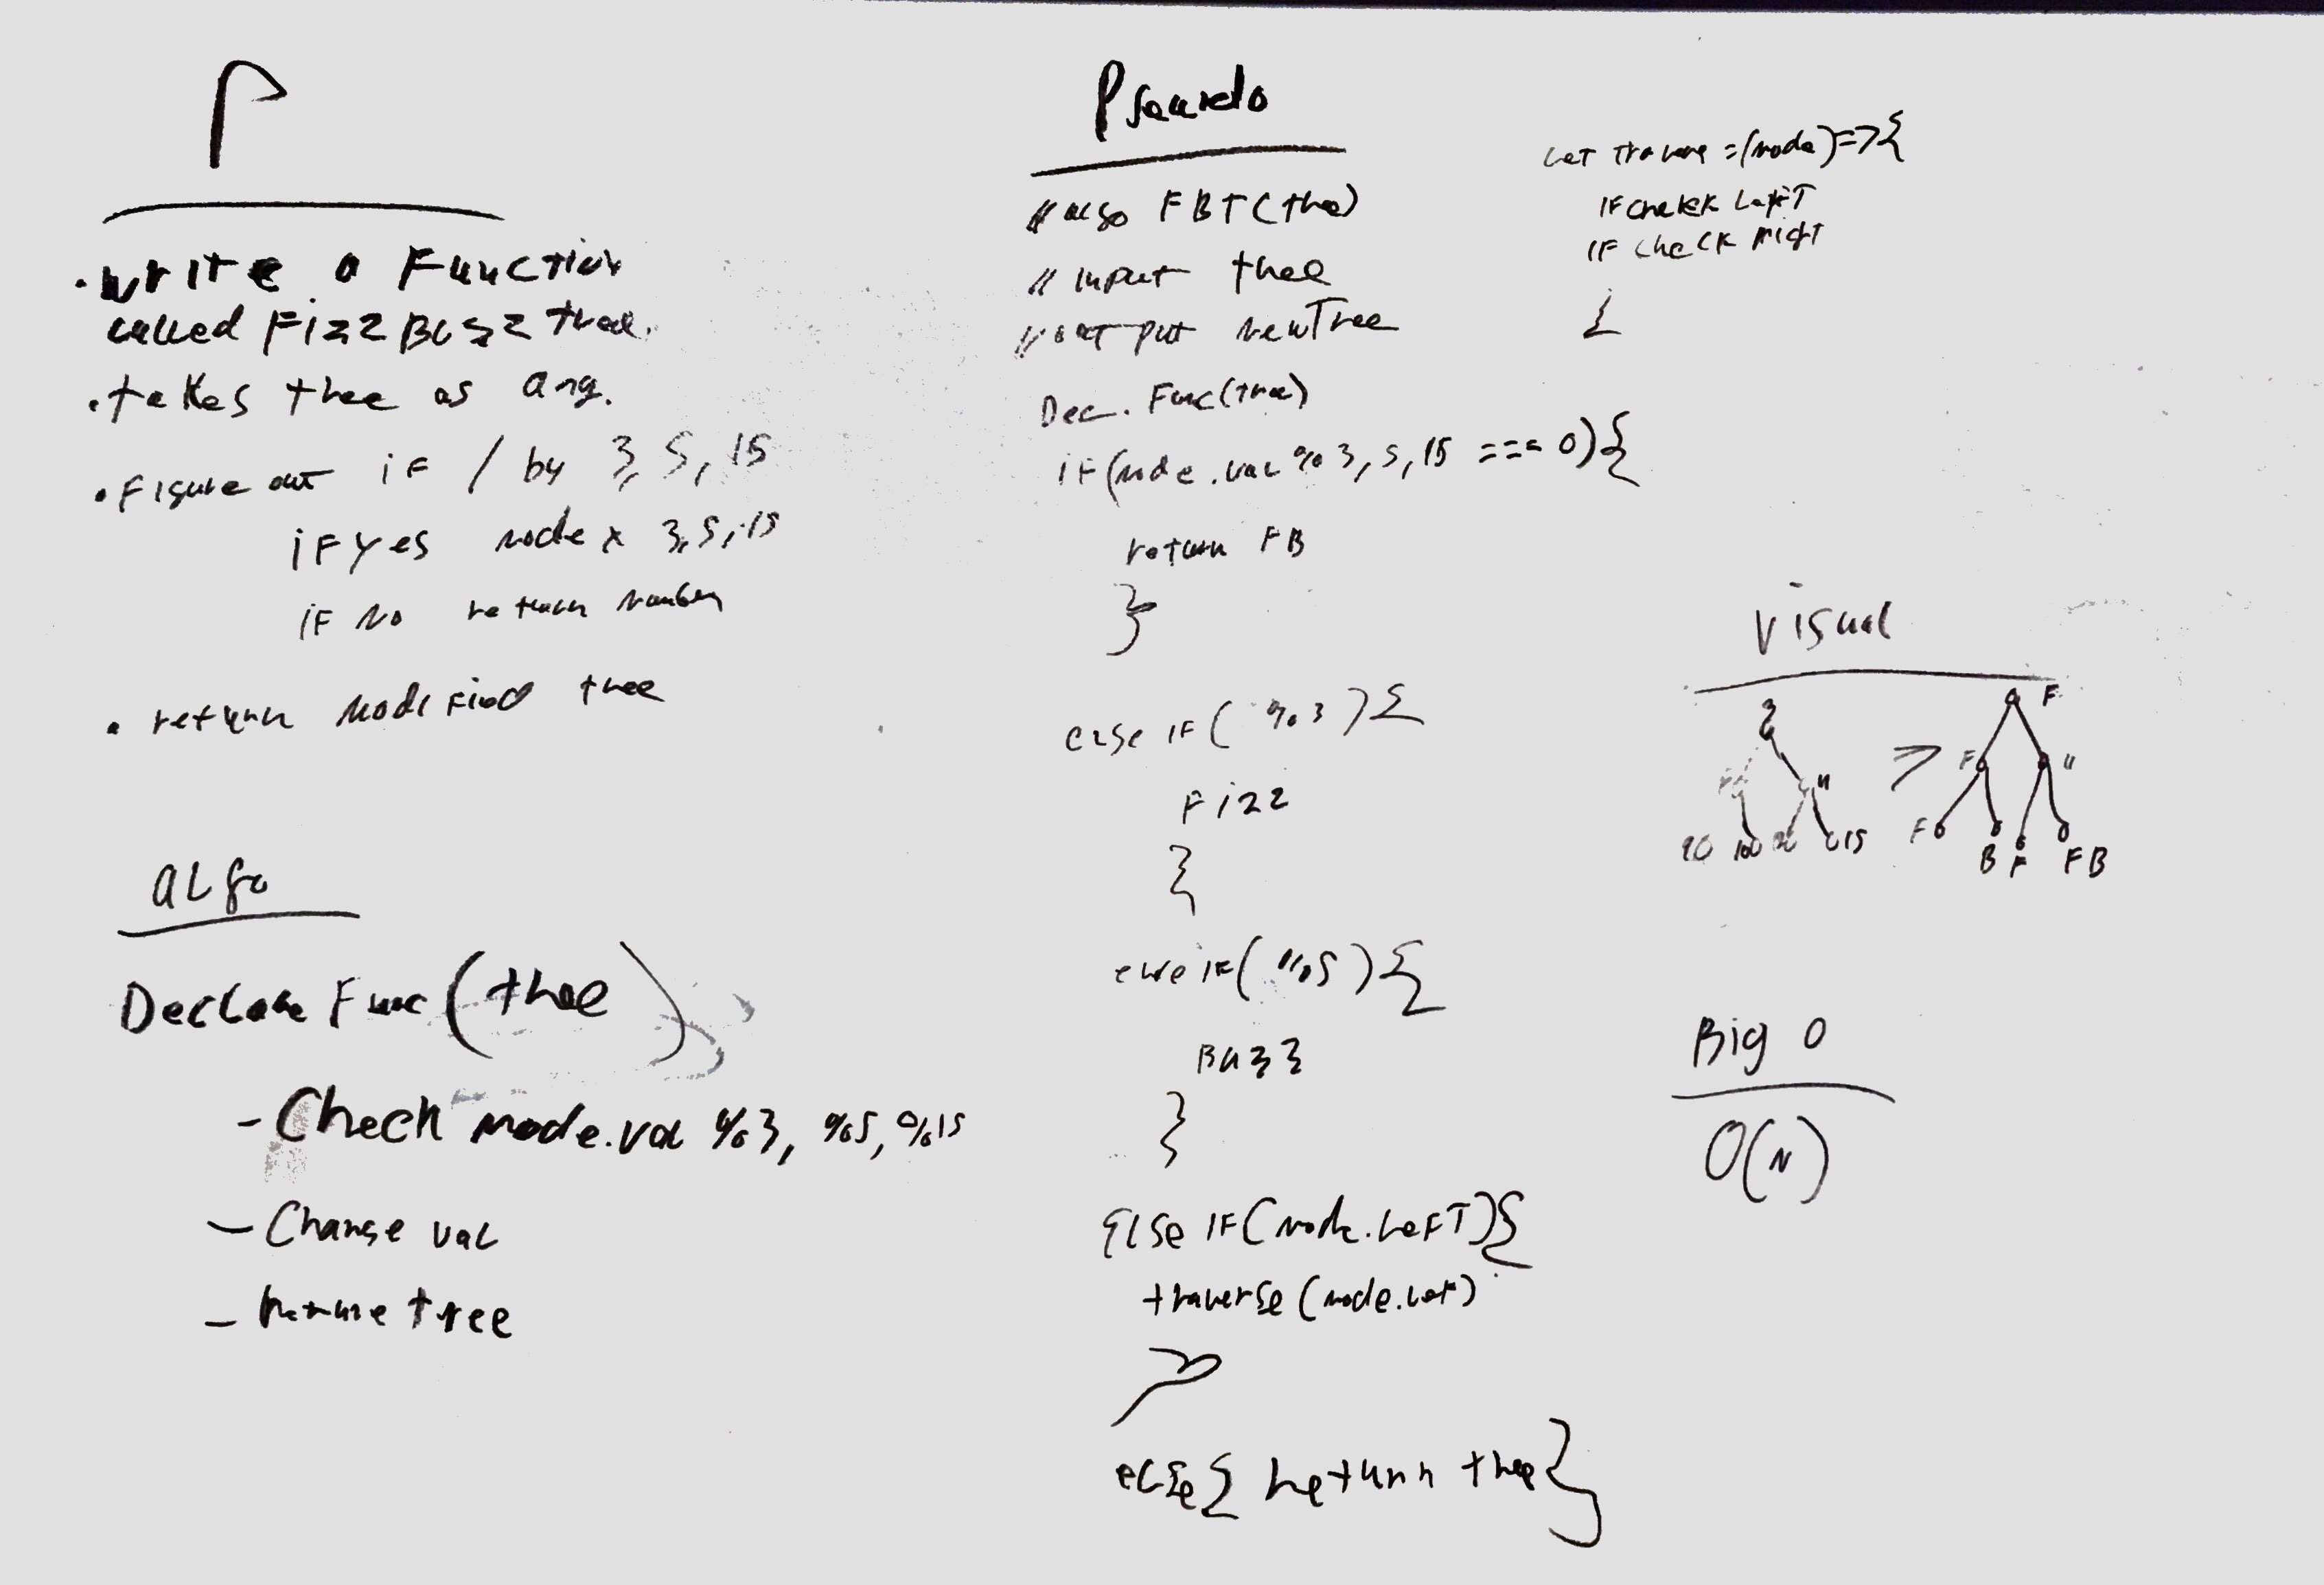 P
• write a Function
called FizzBuzz tree.
• takes tree as arg.
• Figure out if / by 3, 5, 15
if yes node x 3, 5, 15
if No return number
• return modified tree
algo
Declare Func (tree)
- Check node.val %3, %5, %15
- Change val
- tree
Pseudo
// algo FBT(tree)
// input tree
// output newTree
Dec. Func(tree)
if(node.val % 3, 5, 15 === 0){
return FB
}
else if( %3 ){
Fizz
}
else if( %5 ){
Buzz
}
else if(node.left){
traverse(node.left)
}
else{ return tree}
let traverse = (node) => {
if check left
if check right
}
Visual
3 F
F 11 > 11
90 100 15 F B F FB
Big O
O(N)